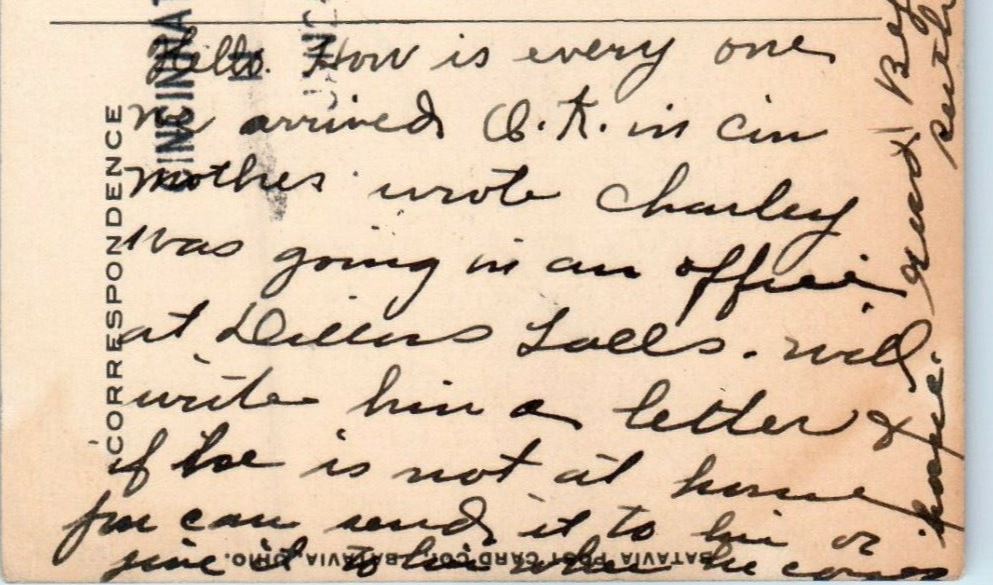 Hello. How is every one
arrived O.K. in Cin
mother wrote Charley
was going in an office
at Falls. will
write him a letter &
if he is not at home
you can send it to him or
give it to him when he comes
CORRESPONDENCE
CINCINNAT
BATAVIA POST CARD CO., BATAVIA, OHIO.